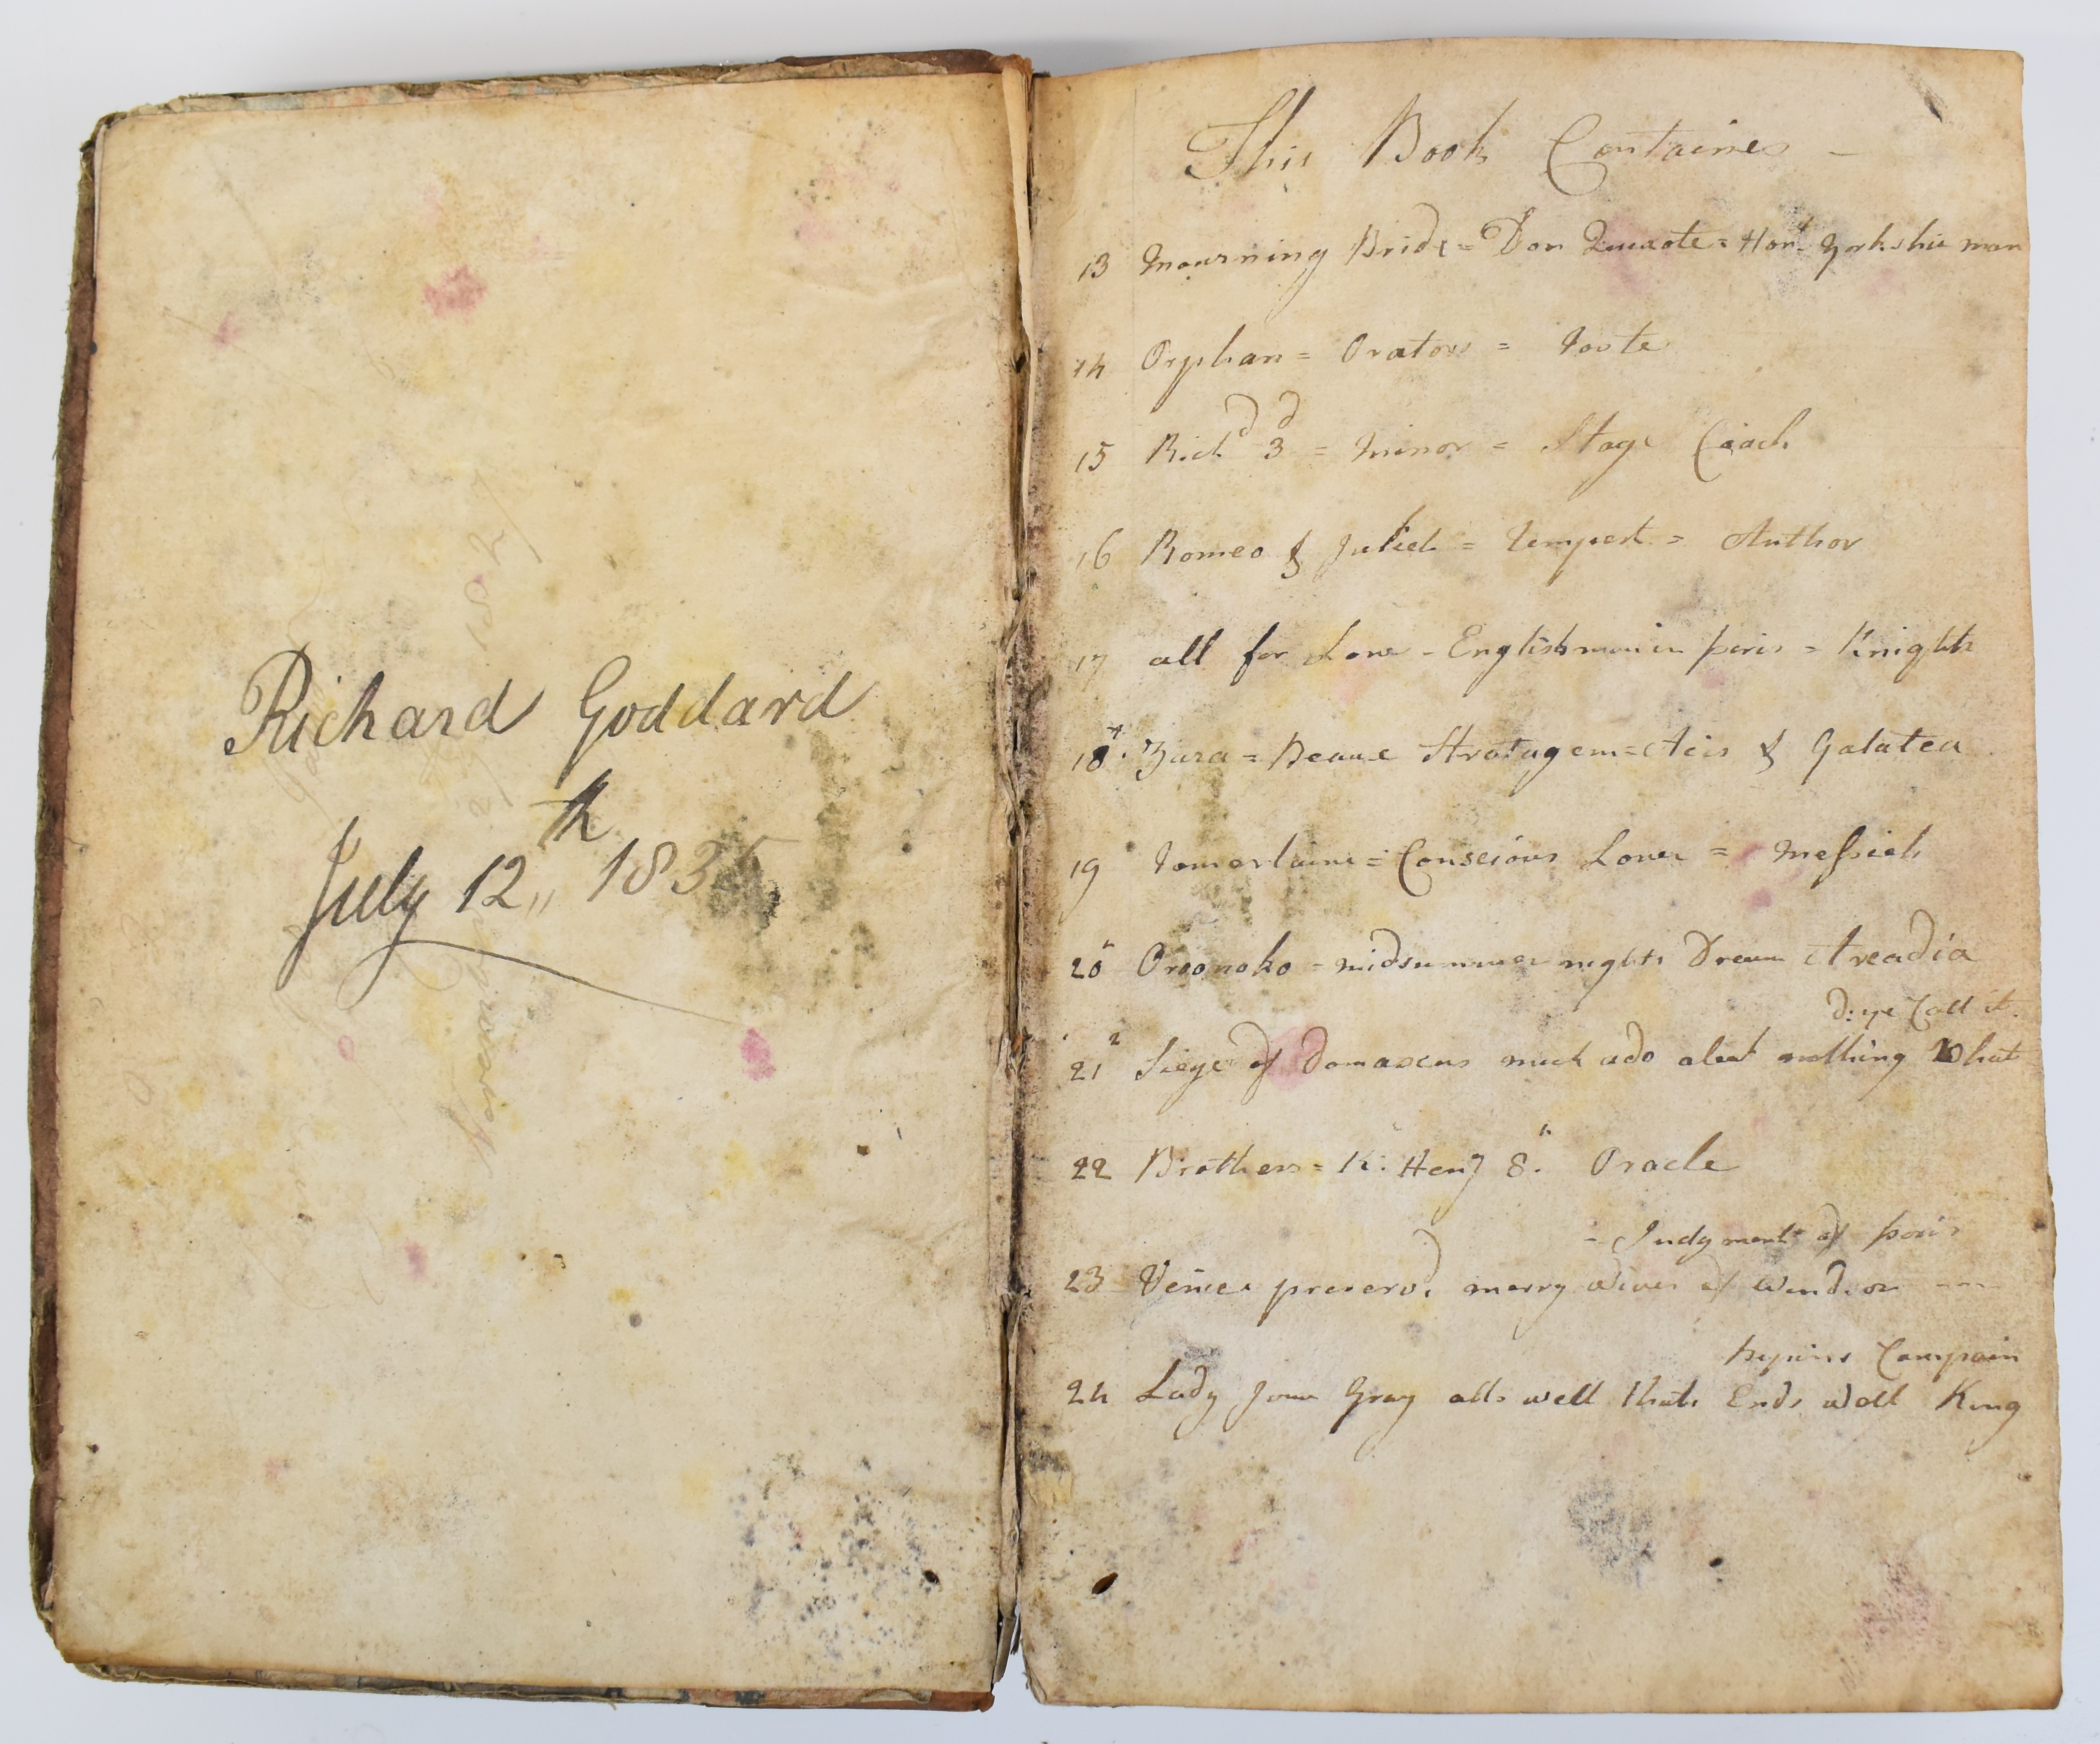 Richard Goddard
July 12th 1835
This Book Containes -
13 Mourning Bride = Don Quixote = Hont Yorkshire man
14 Orphan = Orators = Foote
15 Richd 3d = Minor = Stage Coach
16 Romeo & Juliet = Tempest = Author
17 all for Love - Englishman in paris = Knights
18 Zara = Beaux Stratagem = Acis & Galatea
19 Tamerlaine = Conscious Lovers = Messiah
20 Oroonoko - midsummer nights Dream Arcadia
d: ye Call it.
21 Siege of Damascus much ado about nothing What
22 Brothers = K: Heny 8. Oracle
= Judgment of paris
23 Venice preservd. merry wives of windsor
pepins Campain
24 Lady Jane Gray alls well thats Ends well King